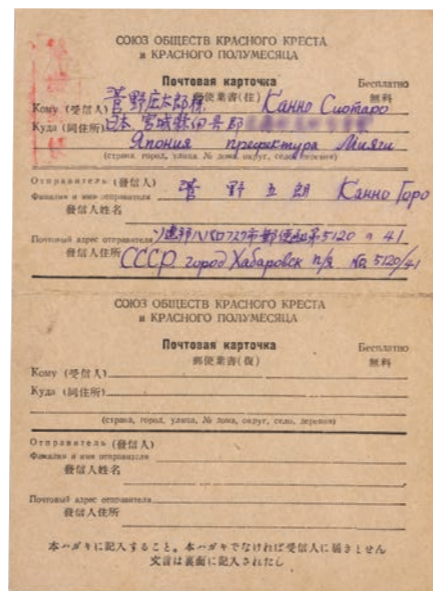 СОЮЗ ОБЩЕСТВ КРАСНОГО КРЕСТА
и КРАСНОГО ПОЛУМЕСЯЦА
Почтовая карточка
Бесплатно
郵便葉書(往)
無料
Кому (受信人) 菅野庄太郎様 Канно Сиотаро
Куда (同住所) 日本 宮城縣
Япония префектура Мияги
(страна, город, улица, № дома, округ, село, деревня)
Отправитель (發信人)
菅野五朗 Канно Горо
Фамилия и имя отправителя
發信人姓名
Почтовый адрес отправителя ソ連邦ハバロフスク市郵便函第5120の41
發信人住所 СССР. город Хабаровск п/я № 5120/41
СОЮЗ ОБЩЕСТВ КРАСНОГО КРЕСТА
и КРАСНОГО ПОЛУМЕСЯЦА
Почтовая карточка
Бесплатно
郵便葉書(復)
無料
Кому (受信人)
Куда (同住所)
(страна, город, улица, № дома, округ, село, деревня)
Отправитель (發信人)
Фамилия и имя отправителя
發信人姓名
Почтовый адрес отправителя
發信人住所
本ハガキに記入すること。本ハガキでなければ受信人に届きません
文言は裏面に記入されたし